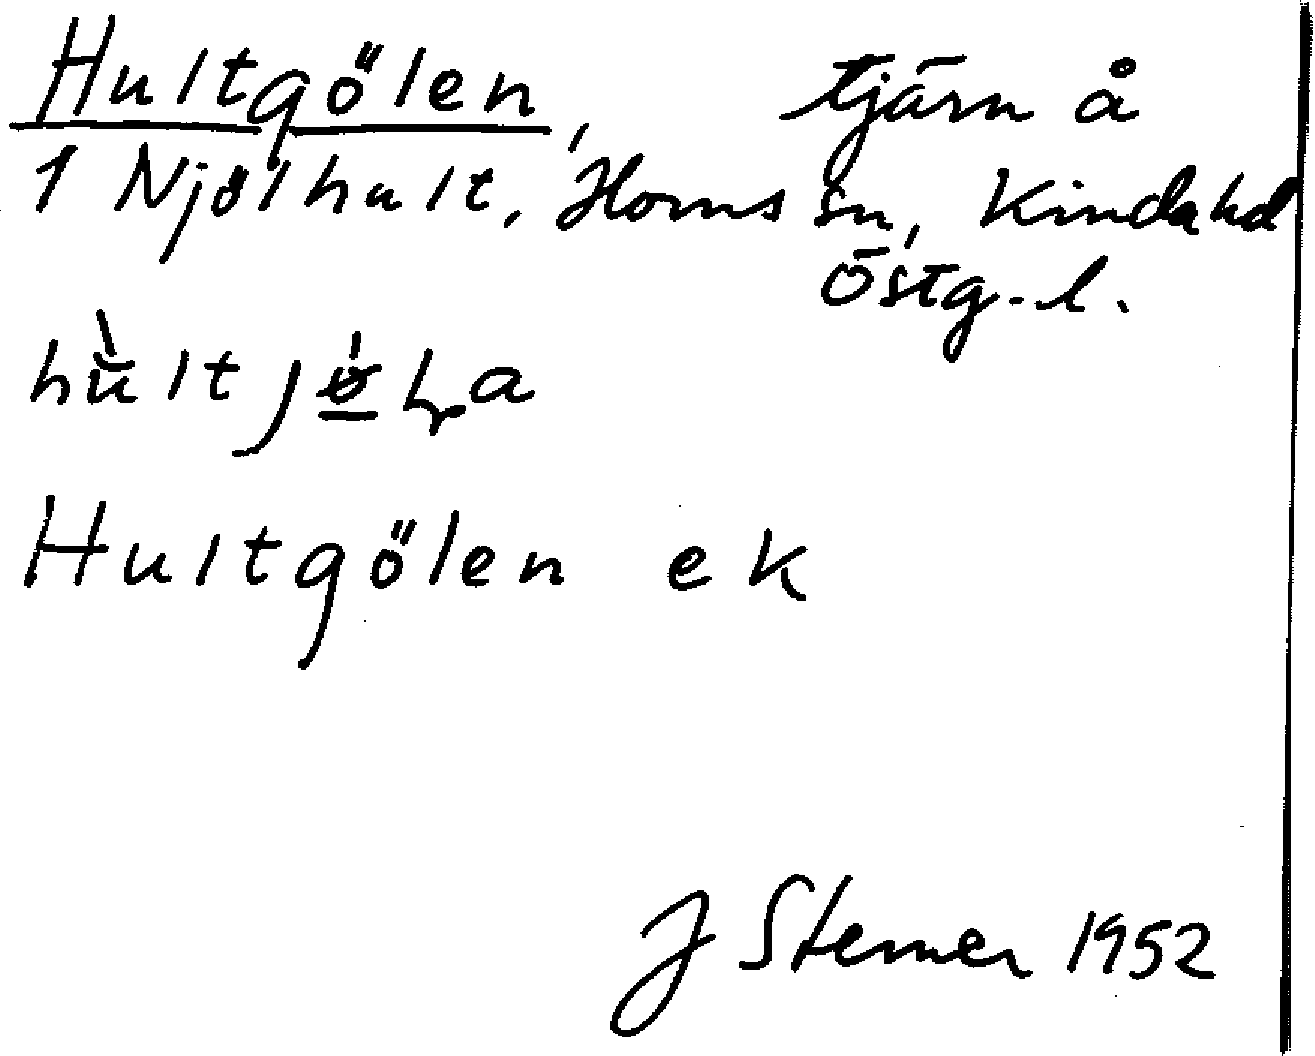 Hultgölen, tjärn å
1 Njölhult, Horns sn, Kinda hd
Östg. l.
Hultgölen ek
J Sterner 1952